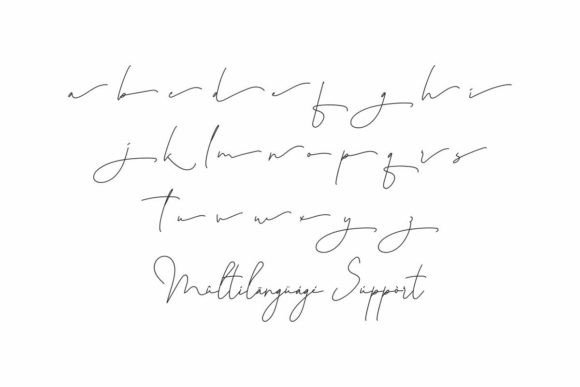 a b c d e f g h i
j k l m n o p q r s
t u v w x y z
Múltílängüágí Süppört